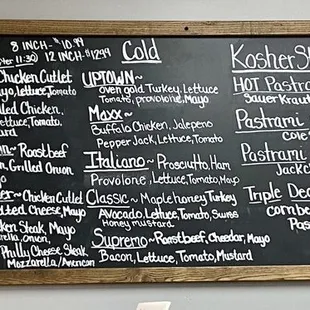 8 INCH- $10.99
12 INCH- $12.99
11:30)
Chicken Cutlet
Mayo, Lettuce, Tomato
Chicken,
Lettuce, Tomato,
Roastbeef
Grilled Onion
Mayo
Chicken Cutlet
Melted Cheese, Mayo
Steak, Mayo
Onion,
Philly Cheese Steak
Mozzarella/American
Cold
UPTOWN~
oven gold Turkey, Lettuce
Tomato, provolone, Mayo
Maxx~
Buffalo Chicken, Jalepeno
Pepper Jack, Lettuce, Tomato
Italiano~ Prosciutto, Ham
Provolone, Lettuce, Tomato, Mayo
Classic~ Maple honey Turkey
Avocado, Lettuce, Tomato, Swiss
Honey mustard
Supremo~ Roastbeef, Cheedar, Mayo
Bacon, Lettuce, Tomato, Mustard
Kosher
HOT Pastra
Sauer Kraut
Pastrami
Pastrami
Jack
Triple Dec
cornbe
Pas